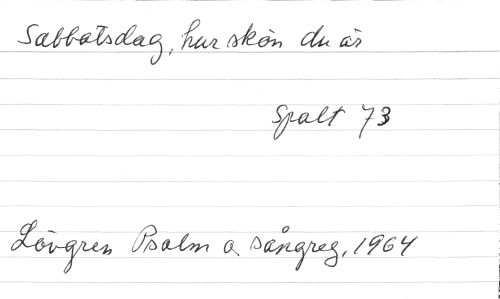 Sabbatsdag, hur skön du är
Spalt 73
Lövgren Psalm o sångreg, 1964